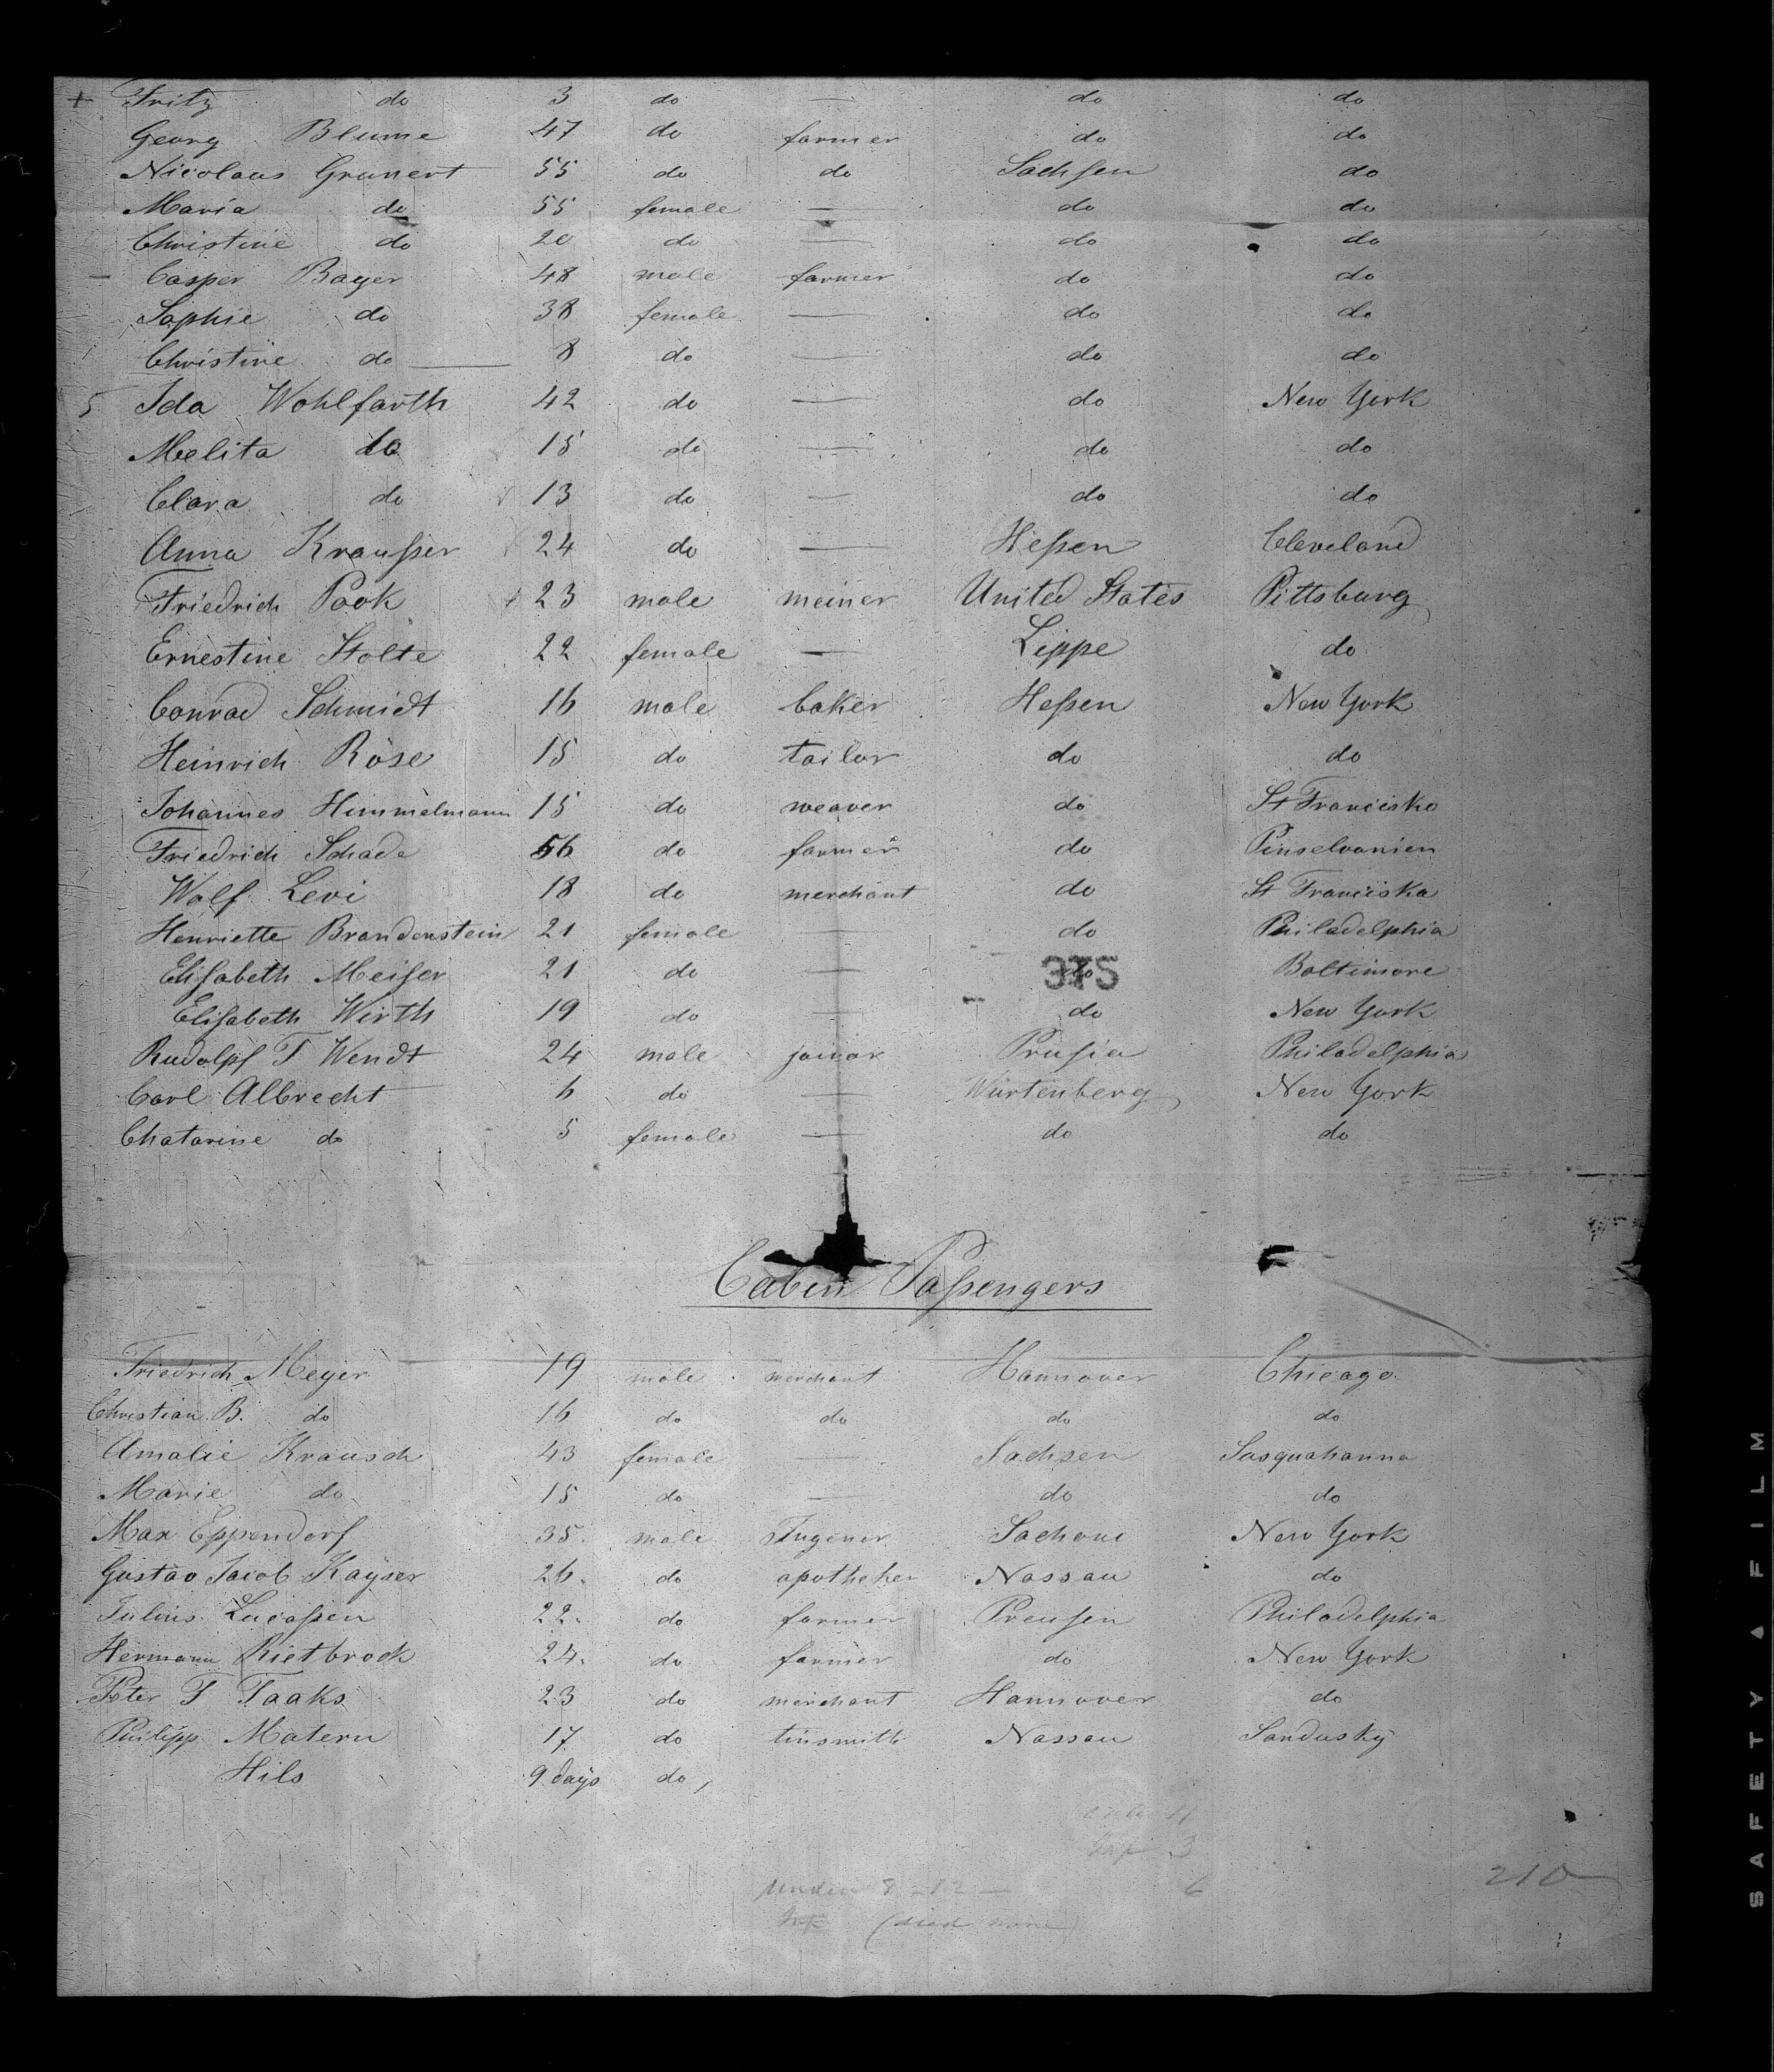 + Fritz do 3 do — do do
Georg Blume 47 do farmer do do
Nicolaus Grunert 55 do do Sachsen do
Maria do 55 female — do do
Christine do 20 do — do do
— Casper Bayer 48 male farmer do do
Sophie do 38 female — do do
Christine do — 8 do — do do
5 Ida Wohlfarth 42 do — do New York
Melita do 15 do — do do
Clara do 13 do — do do
Anna Kraußer 24 do — Heßen Cleveland
Friedrich Pook + 23 male meiner United States Pittsburg
Ernestine Stolte 22 female — Lippe do
Conrad Schmidt 16 male baker Heßen New York
Heinrich Röse 15 do tailor do do
Johannes Himmelmann 15 do weaver do St Francisko
Friedrich Schade 56 do farmer do Pinselvanien
Wolf Levi 18 do merchant do St Franciska
Henriette Brandenstein 21 female — do Philadelphia
Elisabeth Meiser 21 do — do Baltimore
375
Elisabeth Wirth 19 do — do New York
Rudolpf F Wendt 24 male joinor Prusia Philadelphia
Carl Albrecht 6 do — Würtenberg New York
Chatarine do 5 female — do do
Cabin Paßengers
Friedrich Meyer 19 male merchant Hannover Chicago
Christian B. do 16 do do do do
Amalie Krausch 43 female — Sachsen Sasquahanna
Marie do 15 do — do do
Max Eppendorf 35. male New York
Gustav Jacob Kayser 26. do apotheker Nassau do
Julius Lucaßen 22. do farmer Preusen Philadelphia
Hermann Rietbrock 24. do farmer do New York
Peter F Taaks 23 do merchant Hannover do
Philipp Matern 17 do tinsmith Nassau Sandusky
Hils 9 days do,
3
under 8-12 — 6
210
(died none)
SAFETY ▲ FILM